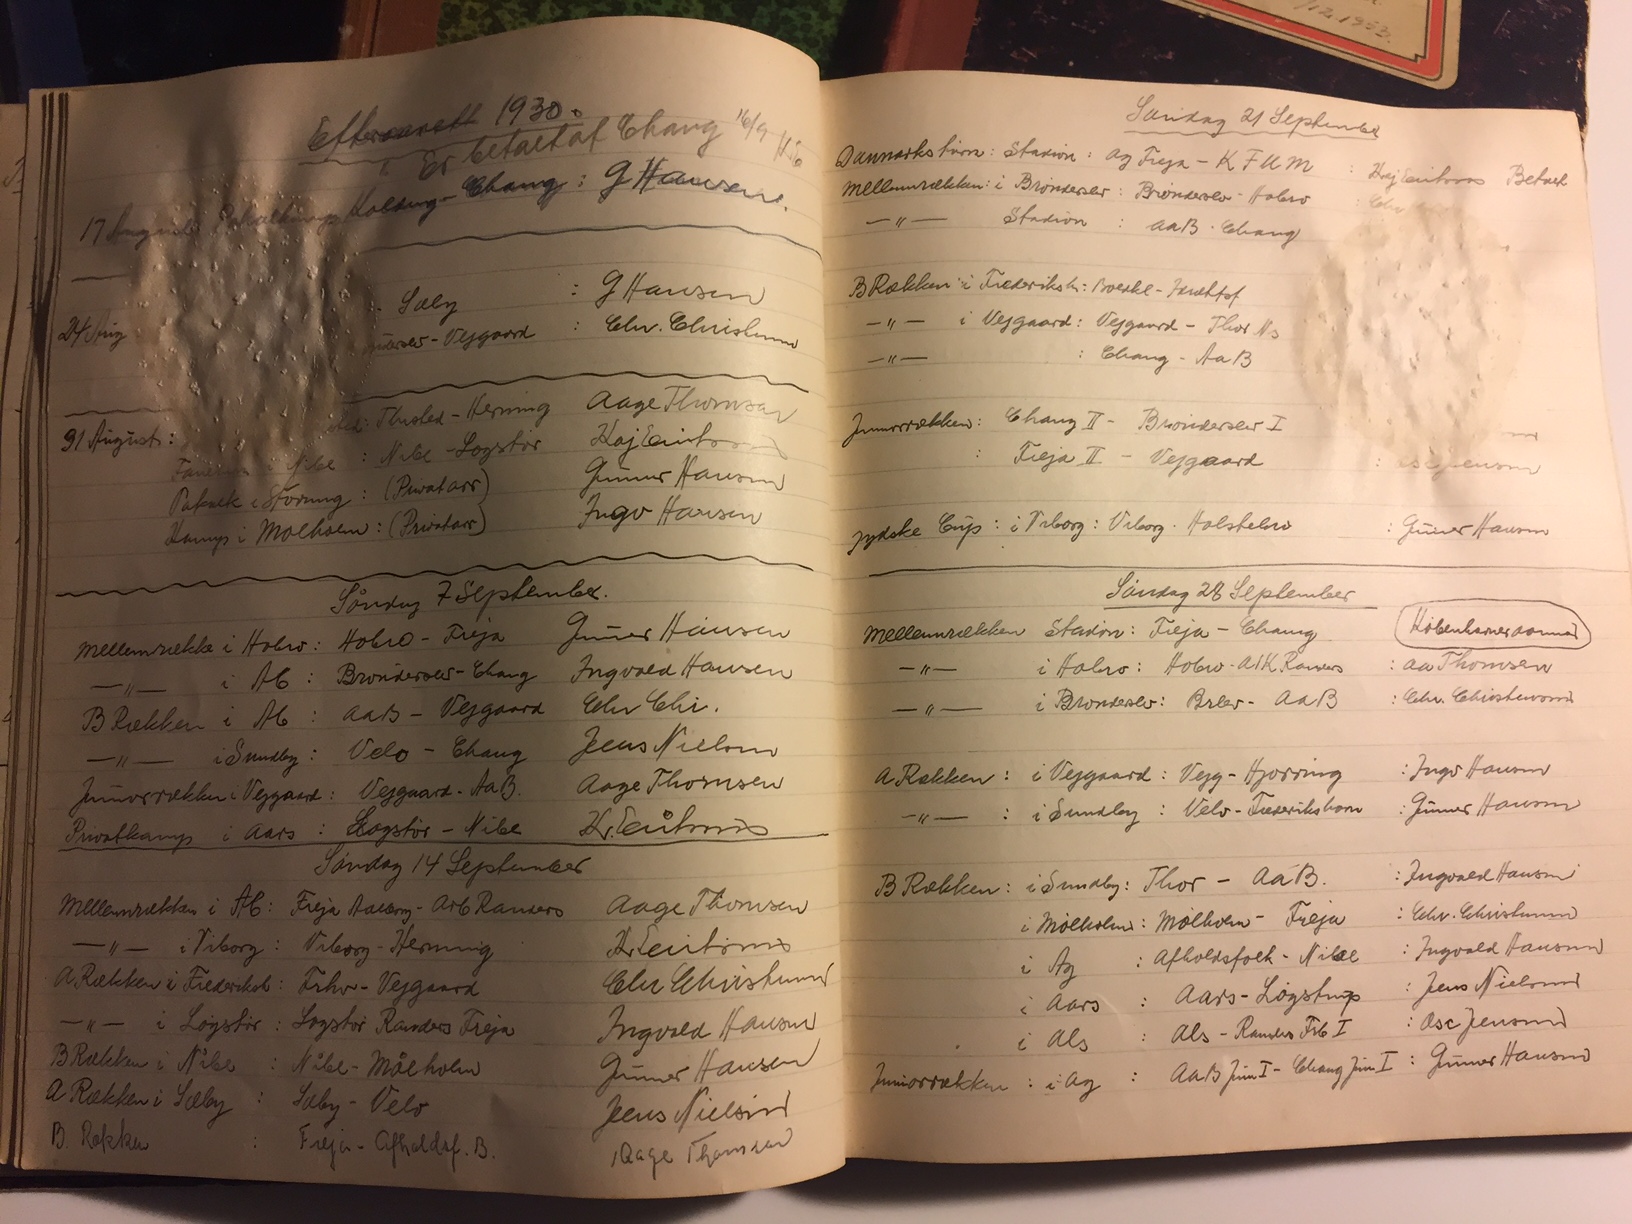 /12.1933.
Efteraaret 1930.
Er betalt af Chang 16/9
17 August: Kolding - Chang : G Hansen.
Sæby : G Hansen
24 Aug - Vejgaard : Chr. Christensen
31 August: Thisted - Herning Aage Thomsen
i Nibe : Nibe - Løgstør Kaj Eriksen
i Støvring : (Privatarr) Gunner Hansen
Kamp i Mølholm : (Privatarr) Ingv Hansen
Søndag 7 September.
Mellemrække i Hobro : Hobro - Freja Gunner Hansen
—"— i Ab : Brønderslev - Chang Ingvald Hansen
B Rækken i Ab : AaB - Vejgaard Chr Chr.
—"— i Sundby : Velo - Chang Jens Nielsen
Juniorrækken i Vejgaard : Vejgaard - AaB. Aage Thomsen
Privatkamp i Aars : Løgstør - Nibe
Søndag 14 September
Mellemrækken i Ab : Freja Aalborg - Randers Aage Thomsen
—"— i Viborg : Viborg - Herning
A Rækken i Frederiksh : Frhv - Vejgaard Chr Christensen
—"— i Løgstør : Løgstør Randers Freja Ingvald Hansen
B Rækken i Nibe : Nibe - Mølholm Gunner Hansen
A Rækken i Sæby : Sæby - Velo Jens Nielsen
B. Rækken : Freja - Afholdsf. B. Aage Thomsen
Søndag 21 September
Danmarksturn : Stadion : Ag Freja - KFUM : Kaj Eriksen Betalt
Mellemrækken : i Brønderslev : Brønderslev - Hobro : Chr
—"— Stadion : AaB - Chang
B Rækken : i Frederiksh :
—"— i Vejgaard : Vejgaard - Thor Ns
—"— : Chang - AaB
Juniorrækken : Chang II - Brønderslev I
: Freja II - Vejgaard : Jensen
Jydske Cup : i Viborg : Viborg - Holstebro : Gunner Hansen
Søndag 28 September
Mellemrækken Stadion : Freja - Chang Københavnerdommer
—"— i Hobro : Hobro - Randers : Aa Thomsen
—"— i Brønderslev : Brlev - AaB : Chr. Christensen
A Rækken : i Vejgaard : Vejg - Hjørring : Ingv Hansen
—"— : i Sundby : Velo - Frederikshavn : Gunner Hansen
B Rækken : i Sundby : Thor - AaB. : Ingvald Hansen
i Mølholm : Mølholm - Freja : Chr. Christensen
i Ag : Afholdsfolk - Nibe : Ingvald Hansen
i Aars : Aars - Løgstrup : Jens Nielsen
i Als : Als - Randers Frb I : Osc Jensen
Juniorrækken : i Ag : AaB Jun I - Chang Jun I : Gunner Hansen